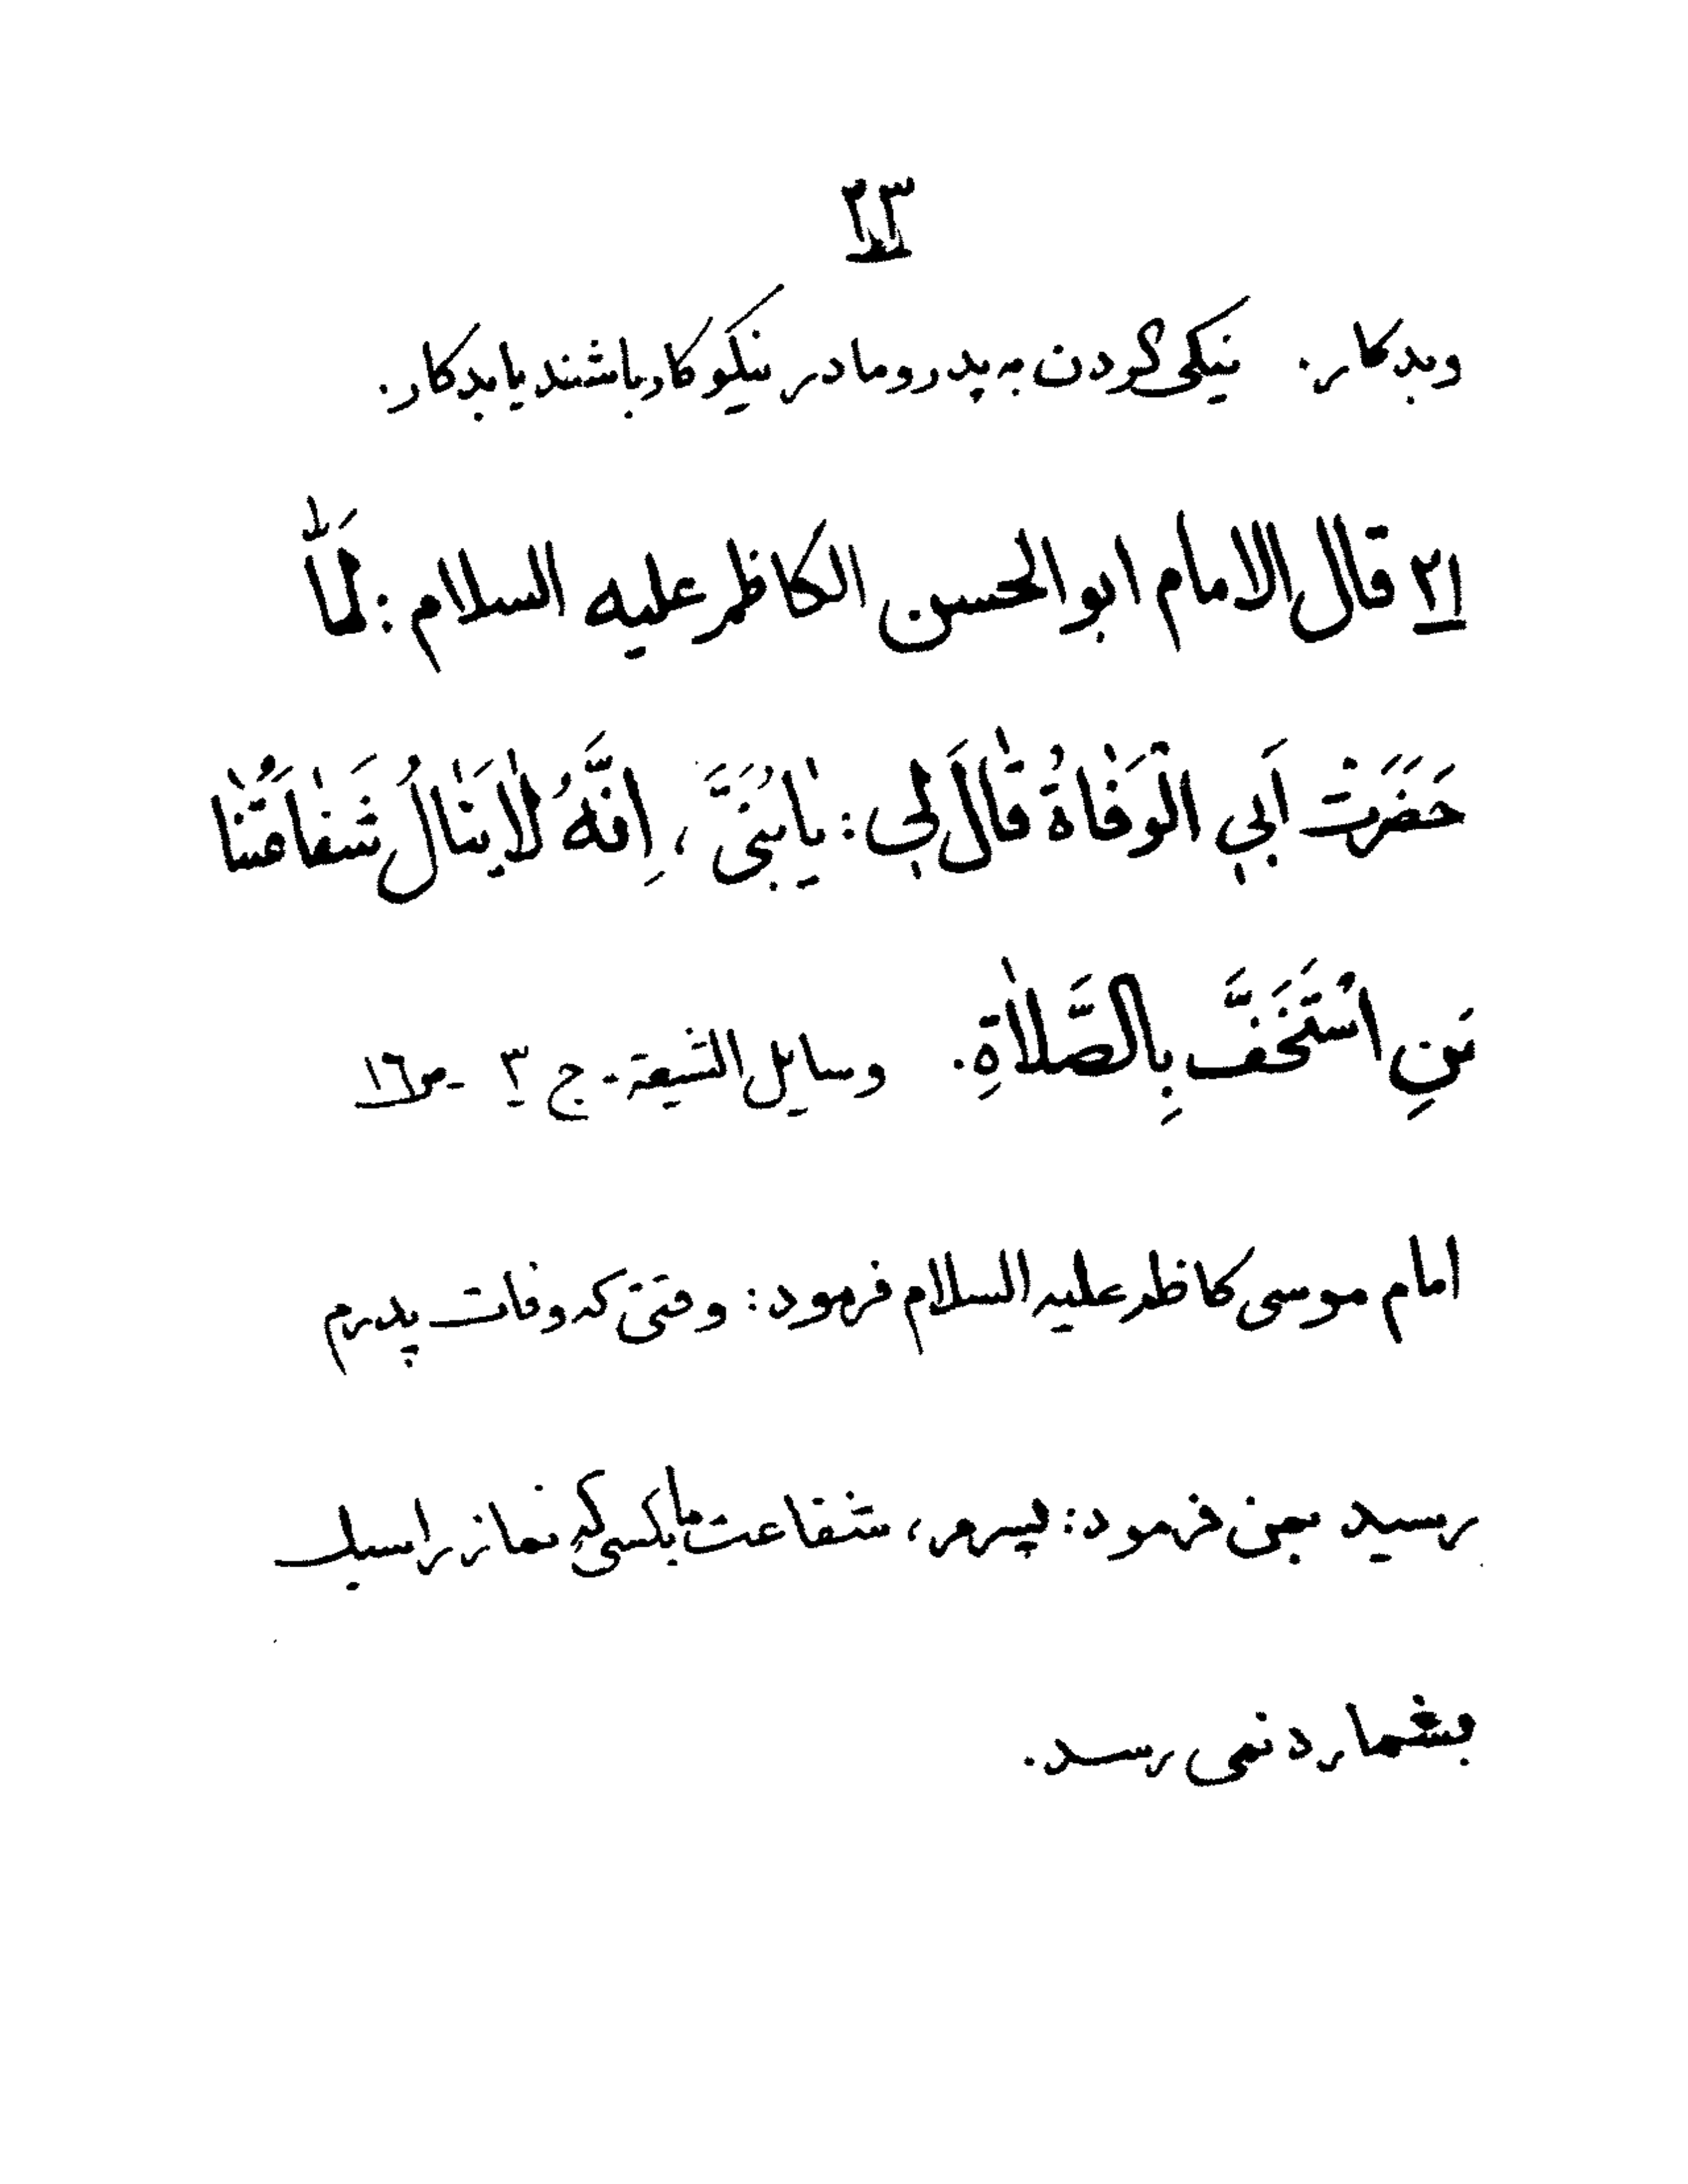 ٢٣
وبدکار. نیکی کردن به پدر و مادر نیکو کار باشند یا بدکار.
٢١ قال الامام ابو الحسن الکاظم علیه السلام: لَمّٰا
حَضَرَتْ اَبيِ الْوَفٰاةُ قٰالَ ليِ: یٰا بُنَیَّ، اِنَّهُ لاٰ یَنٰالُ شَفٰاعَتُنٰا
مَنِ اسْتَخَفَّ بِالصَّلاٰةِ. وسایل الشیعة - ج ٣ - ص ١٦
امام موسی کاظم علیه السلام فرمود: وقتی که وفات پدرم
رسید بمن فرمود: پسرم، شفاعت ما بکسی که نماز را سبک
بشمارد نمی رسد.